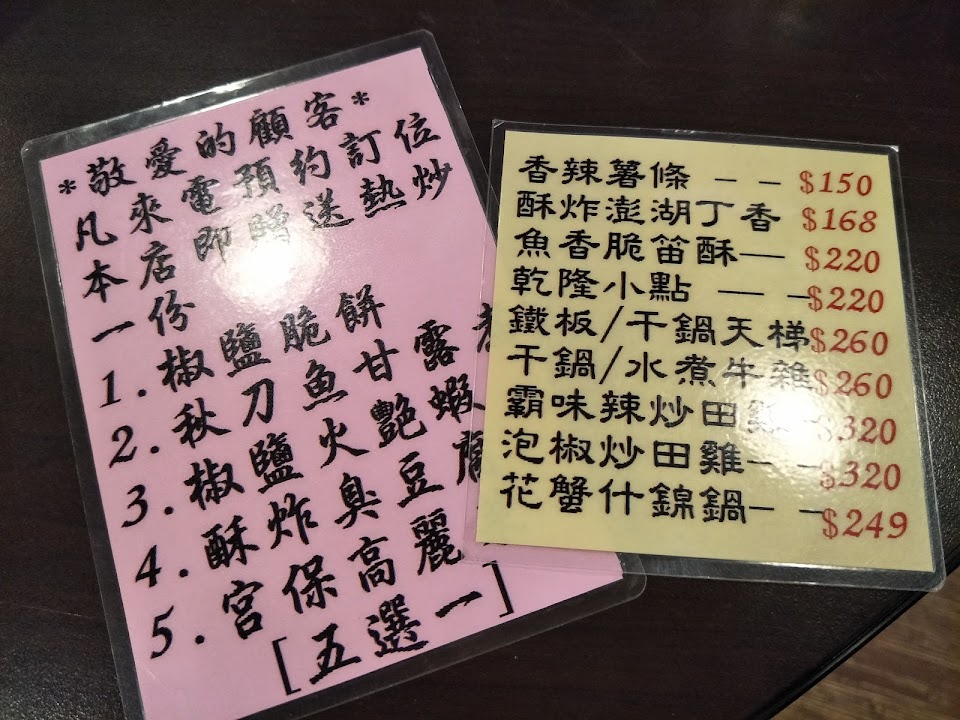 *敬愛的顧客*
凡來電預約訂位
本店即贈送熱炒
一份
1.椒鹽脆餅
2.秋刀魚甘露
3.椒鹽火艷蝦
4.酥炸臭豆腐
5.宮保高麗
[五選一]
香辣薯條 — — $150
酥炸澎湖丁香 $168
魚香脆笛酥—— $220
乾隆小點 — —$220
鐵板/干鍋天梯$260
干鍋/水煮牛雜$260
霸味辣炒田雞—$320
泡椒炒田雞— —$320
花蟹什錦鍋— —$249